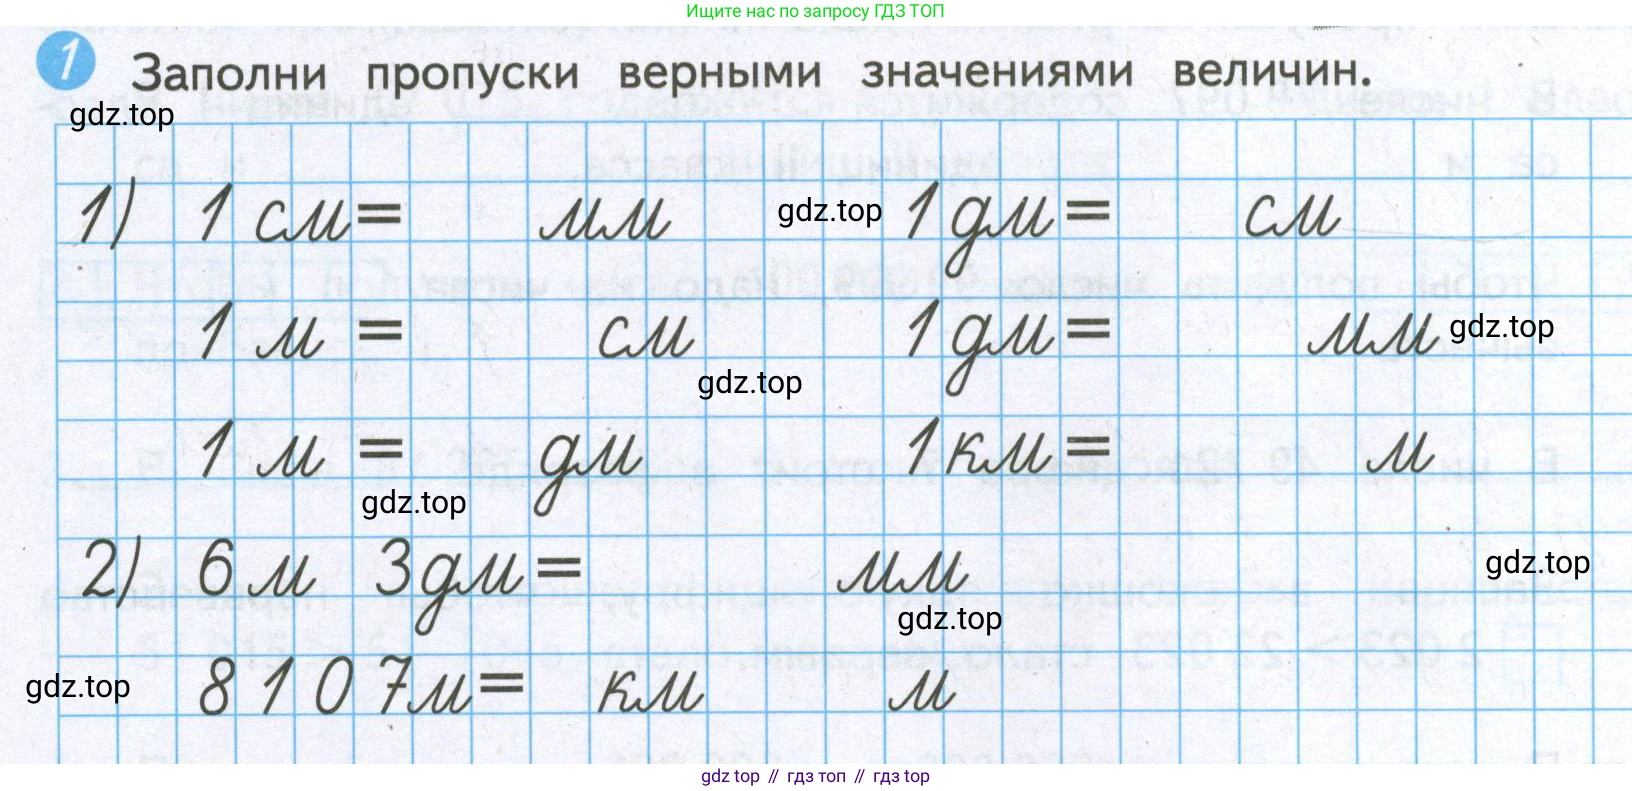 Ищите нас по запросу ГДЗ ТОП
1 Заполни пропуски верными значениями величин.
gdz.top
1) 1 см = мм gdz.top 1 дм = см
1 м = см 1 дм = мм gdz.top
gdz.top
1 м = дм 1 км = м
gdz.top
2) 6 м 3 дм = мм gdz.top
gdz.top
gdz.top 8 1 0 7 м = км м
gdz top // гдз топ // гдз top